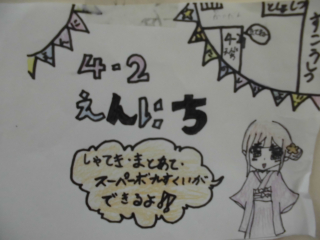 4・2
えんにち
しゃてき・まとあて・
スーパーボールすくいが
できるよ!!
としょしつ
4-2